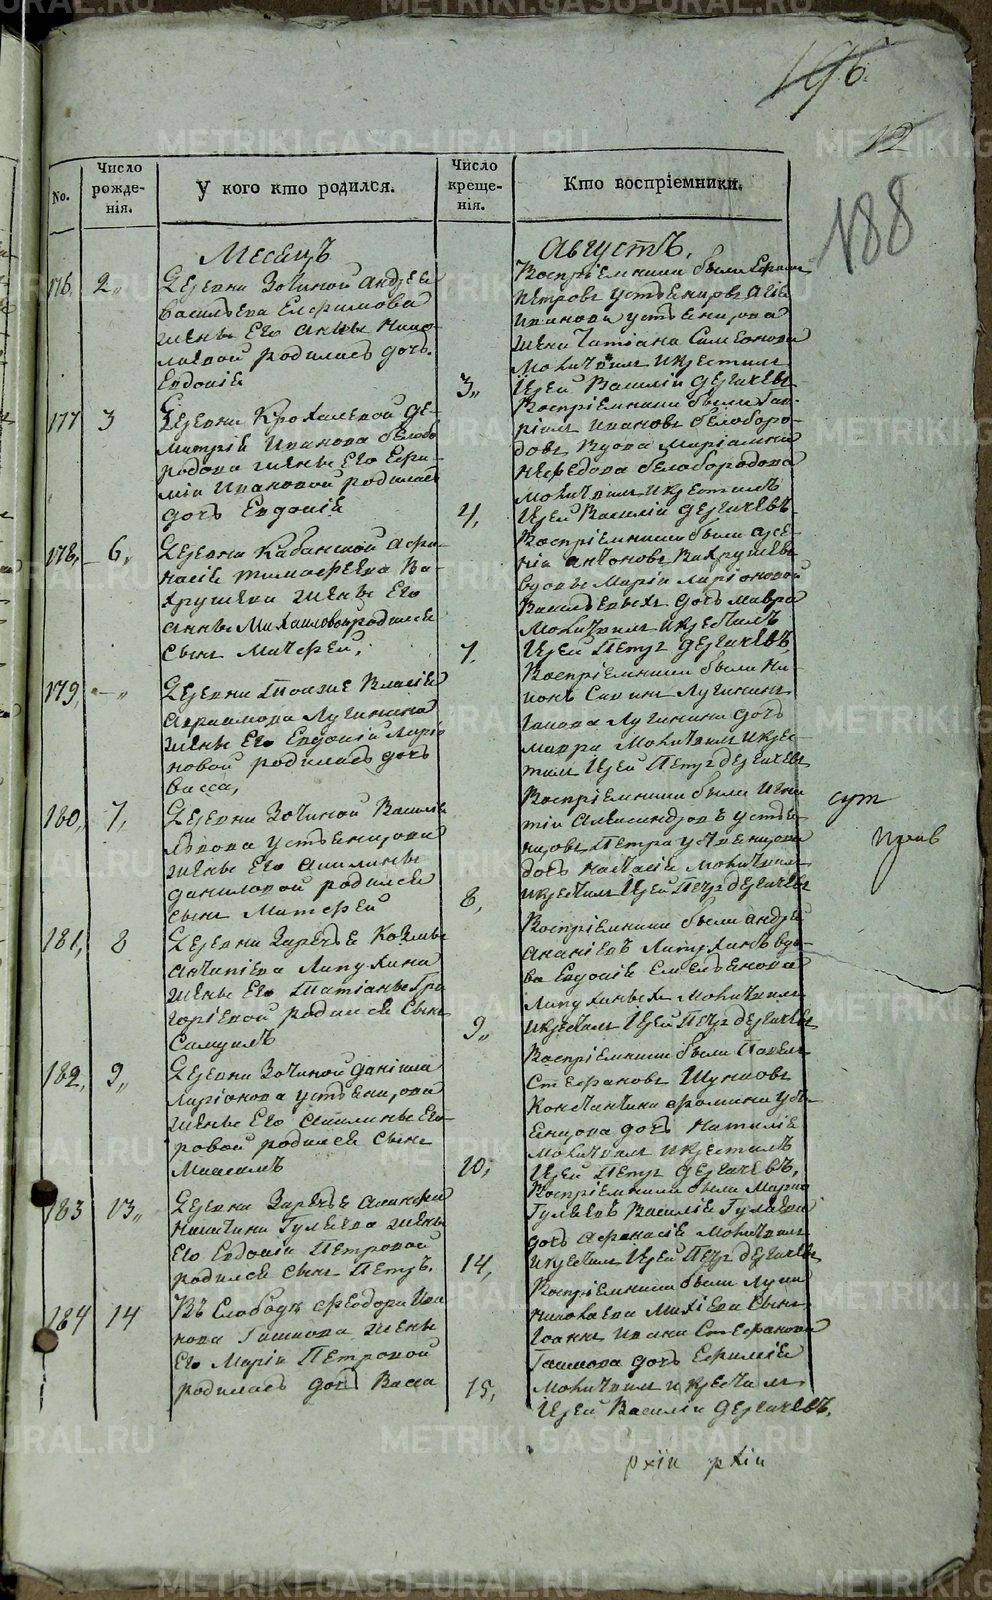 196
12
188
No.
Число рожденія.
У кого кто родился.
Число крещенія.
Кто воспріемники.
Месяцъ
Августъ.
176. 2.
Деревни Зотиной Андрея
Васильева Елфимова
жены Его Анны Нико-
лаевой родилась дочь
Евдокія
Воспріемники были
Петровъ Устьенцовъ
Иванова Устьенцова
жена Татіана Симеонова
Молитвилъ икрестилъ
3.
Іерей Василій Дергачевъ
177 3
Деревни Крохалевой Ди-
митрія Иванова Белобо
родова жены Его Ефи-
міи Ивановой родилась
дочь Евдокія
Воспріемники были Гав-
ріилъ Ивановъ Белоборо-
довъ Вдова Маріамна
Нефедова Белобородова
Молитвилъ икрестилъ
4.
Іерей Василій Дергачевъ
178. 6.
Деревни Кабанской Афа-
насія Тимофеева Ва-
хрушева жены Его
Анны Михаиловой родился
сынъ Матфей.
Воспріемники были
Антоновъ Вахрушевъ
вдовы Маріи Ларіоновой
дочь Мавра
Молитвилъ икрестилъ
7.
Іерей Петръ Дергачевъ
179. — "
Деревни Власія
Авраамова Лугинина
жены Его Евдокіи Ларіо
новой родилась дочь
Васса,
Воспріемники были Ни-
конъ Савинъ Лугининъ
Лугинина дочь
Мавра Молитвилъ икрес-
тилъ Іерей Петръ Дергачевъ
180. 7.
Деревни Зотиной Василія
Львова Устьенцова
жены Его Акилины
Даниловой родился
сынъ Матфей
Воспріемники были Игна
тій Александровъ Устье-
нцовъ Петра Устьенцова
дочь Настасія Молитвилъ
8.
икрестилъ Іерей Петръ Дергачевъ
181. 8
Деревни Заречье Козмы
Антипіева Липухина
жены Его Татіаны Гри
горіевой родился сынъ
Самуилъ
Воспріемники были Андрей
Ананіевъ Липухинъ вдо-
ва Евдокія Емельянова
Липухиныхъ Молитвилъ
9.
икрестилъ Іерей Петръ Дергачевъ
182. 9.
Деревни Зотиной Даніила
Ларіонова Устьенцова
жены Его Акилины Его-
ровой родился сынъ
Маккимъ
Воспріемники были Павелъ
Стефановъ Шунковъ
Константина Фомина Усть-
Енцова дочь Наталія
Молитвилъ икрестилъ
10.
Іерей Петръ Дергачевъ.
183 13.
Деревни Заречье
Никитина Гуляева жены
Его Евдокіи Петровой
родился сынъ Петръ.
Воспріемники были
Гуляевъ Василія Гуляева
дочь Афанасія Молитвилъ
14.
икрестилъ Іерей Петръ Дергачевъ
184 14
Въ Слободе Феодора Ива
нова Ташкова жены
Его Маріи Петровой
родилась дочь Васса
Воспріемники были Луки
Николаева Михіева сынъ
Іоаннъ Ивана Стефанова
Ташкова дочь Ефимія
Молитвилъ икрестилъ
15.
Іерей Василій Дергачевъ.
METRIKI.GASO-URAL.RU